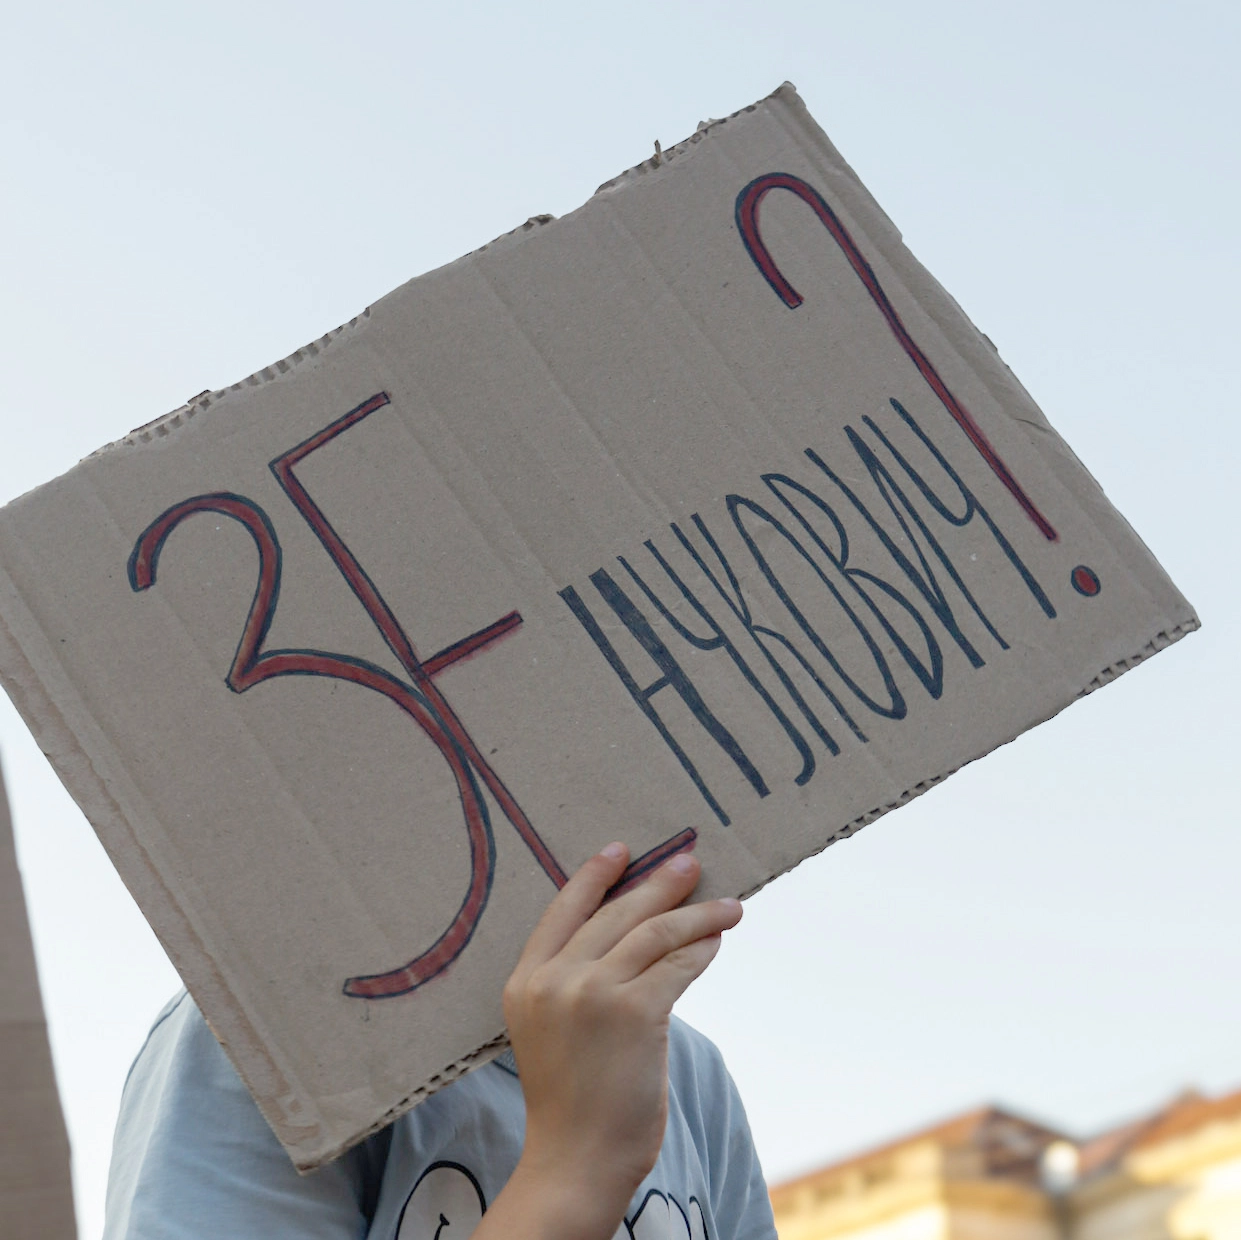 ЗЕНУКОВИЧ?